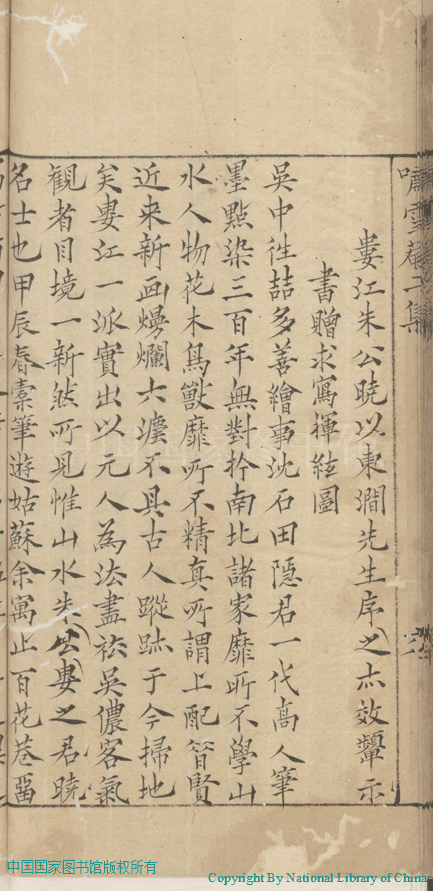 嘯雪菴二集
婁江朱公曉以東澗先生序之亦效顰示
書贈求寫揮絃圖
吳中徃喆多善繪事沈石田隱君一代高人筆
墨點染三百年無對於南北諸家靡所不學山
水人物花木鳥獸靡所不精真所謂上配昔賢
近来新画爛大不具古人蹤跡于今掃地
矣婁江一派實出以元人為法盡祛吳儂客氣
観者目境一新然所見惟山水朱公婁之君曉
名士也甲辰春橐筆遊姑蘇余寓止百花巷畱
中国国家图书馆版权所有
Copyright By National Library of China